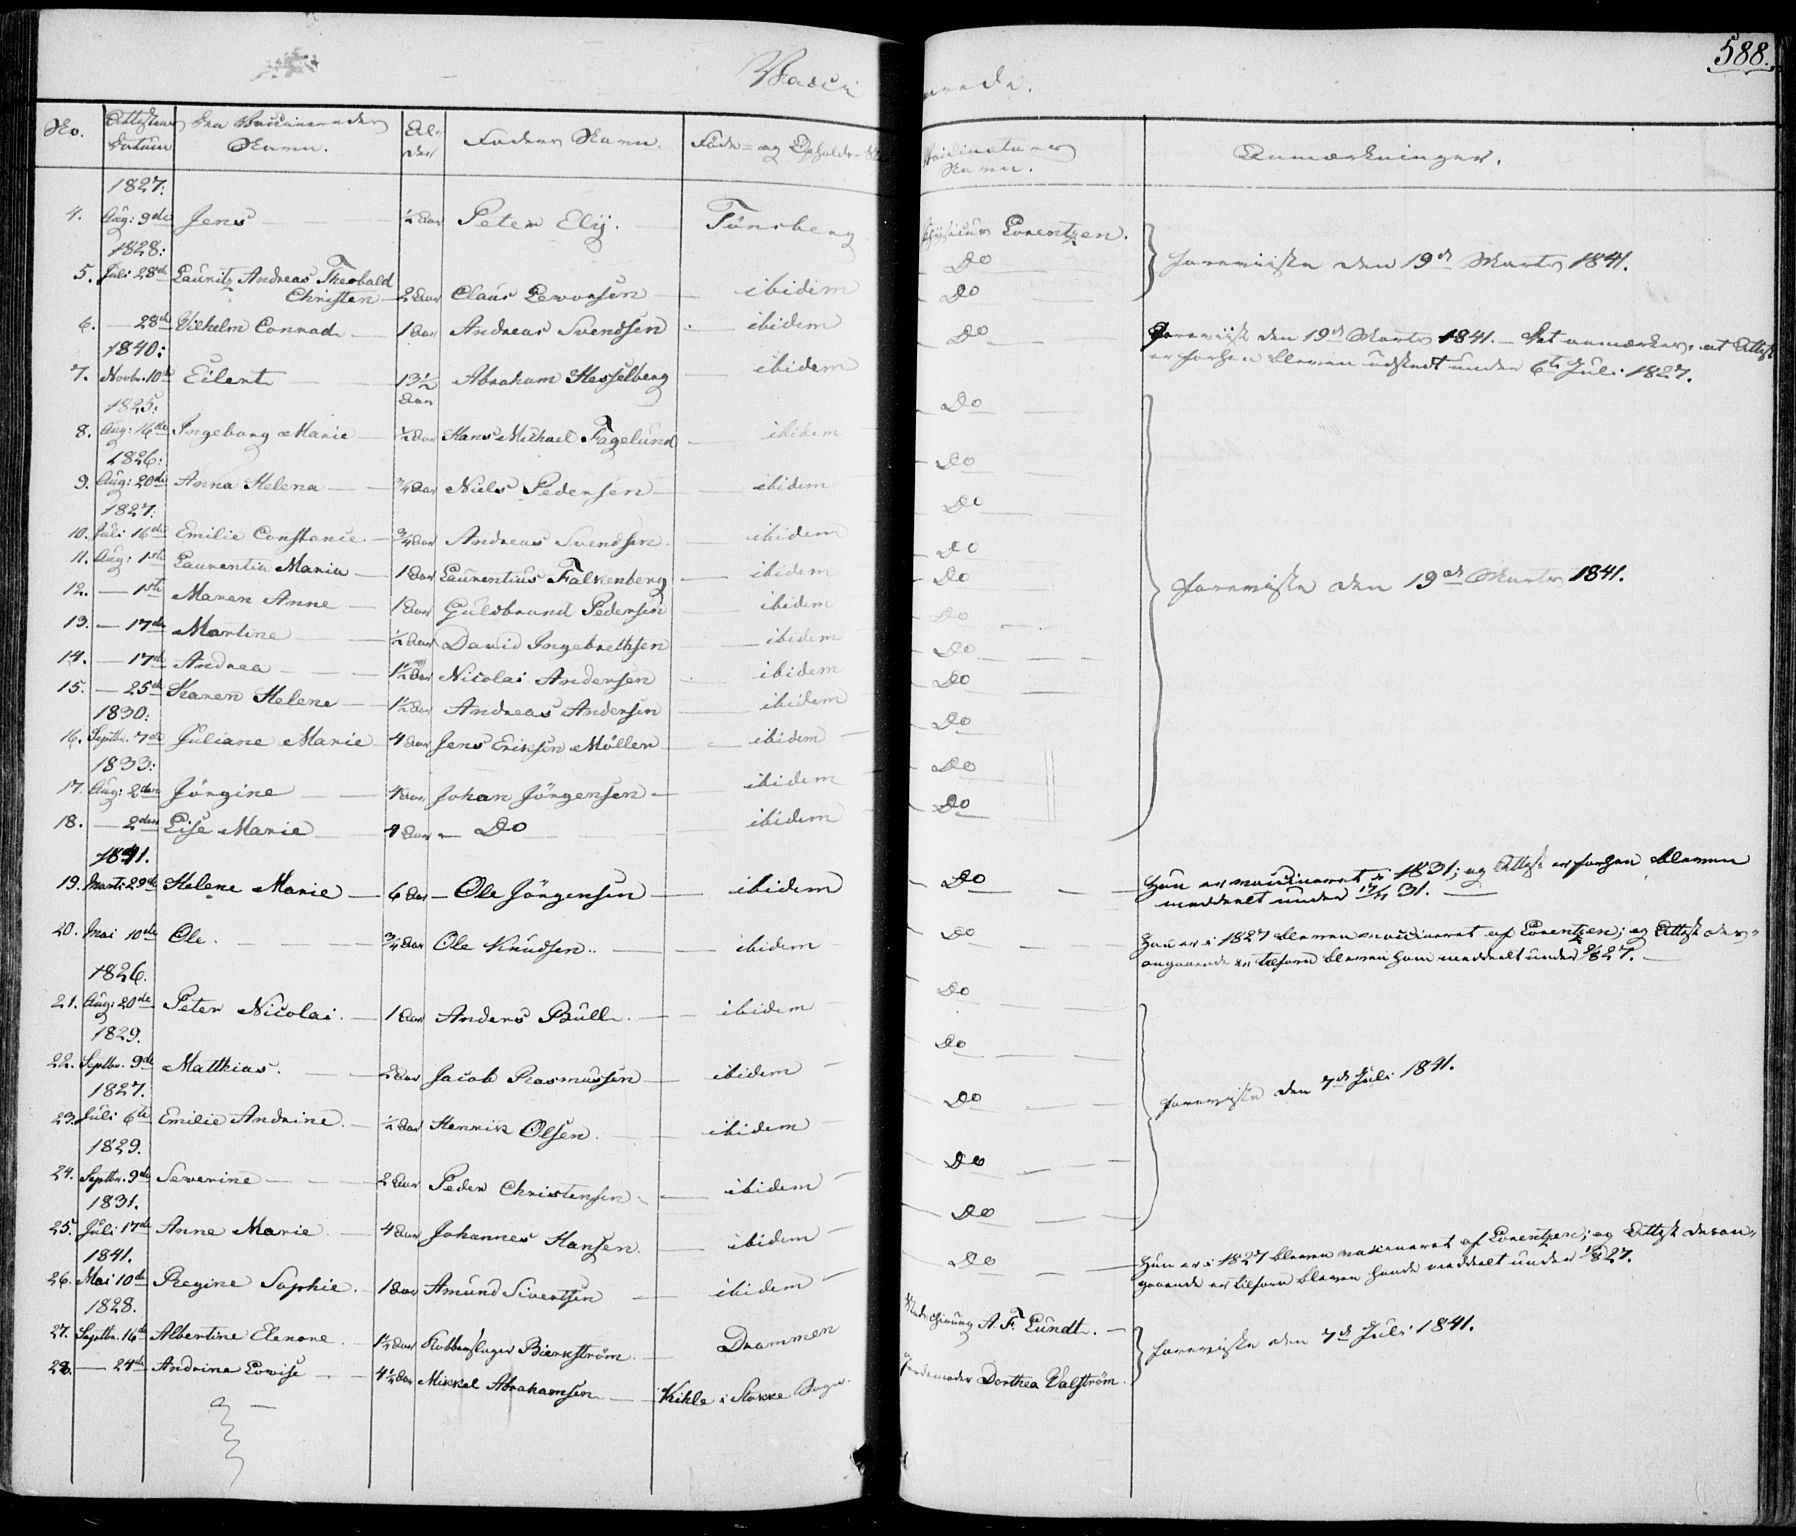 588.
Vacci nerede.
No. Attestens Datum De Vaccineredes Navn. Al- der Faders Navn. Føde- og Opholds- Vaccinateurens Navn. Anmærkninger.
1827.
4. Aug: 9de Jens ½ Aar Peter Ely. Tönsberg Physicus Lorentzen.
1828:
5. Juli 28de Lauritz Andreas Theobald
Christen 2 Aar Claus Leworsen ibidem Do foreviiste den 19de Marts 1841.
6. — 28de Vilhelm Conrad 1 Aar Andreas Svendsen ibidem Do
1840:
7. Novbr. 10de Eilert 13½ Aar Abraham Hesselberg ibidem Do Foreviist den 19de Marts 1841. — Det anmærkes, at Attest
er forhen bleven udstedt under 6te Juli 1827.
1825:
8. Aug: 16de Ingeborg Marie ½ Aar Hans Michael Fagelund ibidem Do
1826:
9. Aug: 20de Anna Helena ¾ Aar Niels Pedersen ibidem Do
1827.
10. Juli 16de Emilie Constance ¾ Aar Andreas Svendsen ibidem Do
11. Aug: 1ste Laurentia Maria 1 Aar Laurentius Falkenberg ibidem Do
12. — 1ste Maren Anne 1 Aar Guldbrand Pedersen ibidem Do foreviste den 19de Marts 1841.
13. — 17de Martine ½ Aar David Ingebrethsen ibidem Do
14. — 17de Andrea 1½ Aar Nicolai Andersen ibidem Do
15. — 25de Karen Helene 1½ Aar Andreas Andersen ibidem Do
1830:
16. Septbr. 7de Juliane Marie 4 Aar Jens Eriksen Möller ibidem Do
1833:
17. Aug: 2den Jörgine Aar Johan Jörgensen ibidem Do
18. — 2den Lise Marie 4 Aar Do ibidem Do
1841.
19. Marts 29de Helene Marie 6 Aar Ole Jörgensen ibidem Do Hun er vaccineret i 1831; og Attest er forhen bleven
meddeelt under 31.
20. Mai 10de Ole. ¾ Aar Ole Knudsen. ibidem Do Han er i 1827 bleven vaccineret af Lorentzen; og Attest des-
angaaende er tilforn bleven ham meddeelt under 27.
1826.
21. Aug: 20de Peter Nicolai. 1 Aar Anders Bull. ibidem Do
1829.
22. Septbr. 9de Matthias. 2 Aar Jacob Rasmussen ibidem Do
1827.
23. Juli 6te Emilie Andrine. ½ Aar Henrik Olsen. ibidem Do foreviste den 7de Juli 1841.
1829.
24. Septbr. 9de Severine 2 Aar Peder Christensen ibidem Do
1831.
25. Juli 17de Anne Marie. 4 Aar Johannes Hansen. ibidem Do
1841.
26. Mai 10de Regine Sophie. 1 Aar Amund Sivertsen ibidem Do Hun er i 1827 bleven vaccineret af Lorentzen; og Attest desan-
gaaende er tilforn bleven hende meddeelt under 27.
1828.
27. Septbr. 16de Albertine Elenore. 1½ Aar Kobberslager Bierkström. Drammen Underchirurg A. F. Lundt.
28. — 24de Andrine Lovise 4½ Aar Mikkel Abrahamsen Kihle i Stokke Sogn. Jordemoder Dorthea Valström. foreviste den 7de Juli 1841.